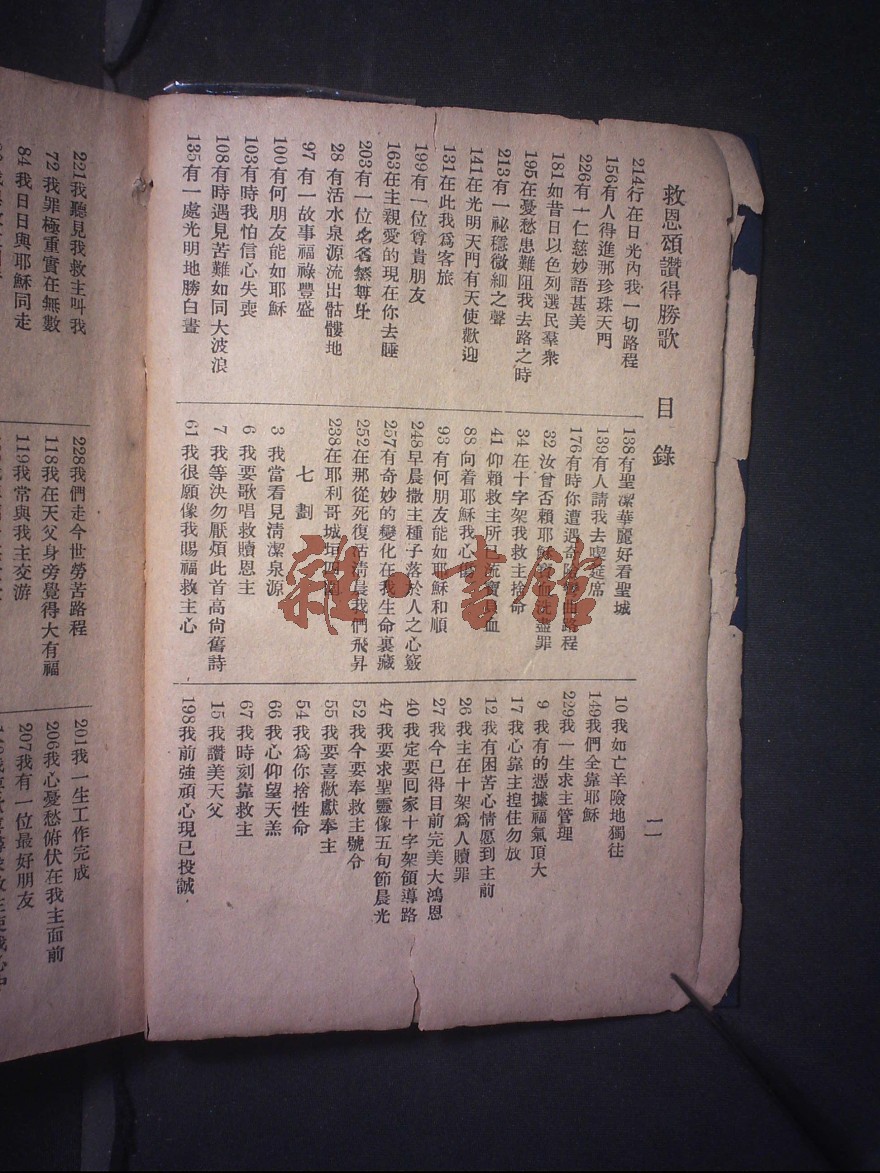 救恩頌讚得勝歌 目錄 一一
214行在日光內我一切路程
156有人得進那珍珠天門
226有一仁慈妙語甚美
181如昔日以色列選民羣衆
195在憂愁患難阻我去路之時
213有一祕穩微細之聲
141在光明天門有天使歡迎
131在此我爲客旅
199有一位尊貴朋友
163在主親愛的現在你去睡
203有一位名
28有活水泉源流出骷髏地
97有一故事福祿豐盛
100有何朋友能如耶穌
103有時我怕信心失喪
108有時遇見苦難如同大波浪
135有一處光明地勝白晝
138有聖潔華麗好看聖城
139有人請我去喫筵席
176有時你遭遇奇險彎曲路程
32汝曾否賴耶穌寶血洗盡罪
34在十字架我救主捨命
41仰賴救主所已流寶貝血
88向着耶穌我心
93有何朋友能如耶穌和順
248早晨撒主種子落於人之心竅
257有奇妙的變化在我生命裏藏
252在那從死復活清晨我們飛昇
238在耶利哥城垣四圍
七劃
3我當看見清潔泉源
6我要歌唱救贖恩主
7我等決勿厭煩此首高尙舊詩
61我很願像我賜福救主心
10我如亡羊險地獨往
149我們全靠耶穌
229我一生求主管理
9我有的憑據福氣頂大
17我心靠主揘住勿放
12我有困苦心情愿到主前
26我主在十架爲人贖罪
27我今已得目前完美大鴻恩
40我定要囘家十字架領導路
47我要求聖靈像五旬節晨光
52我今要奉救主號令
55我要喜歡獻奉主
54我爲你捨性命
66我心仰望天羔
67我時刻靠救主
15我讚美天父
198我前強頑心現已投誠
221我聽見我救主叫我
72我罪極重實在無數
84我日日與耶穌同走
228我們走今世勞苦路程
118我在天父身旁覺得大有福
119我常與我主交游
201我一生工作完成
206我心憂愁俯伏在我主面前
207我有一位最好朋友
雜·書館